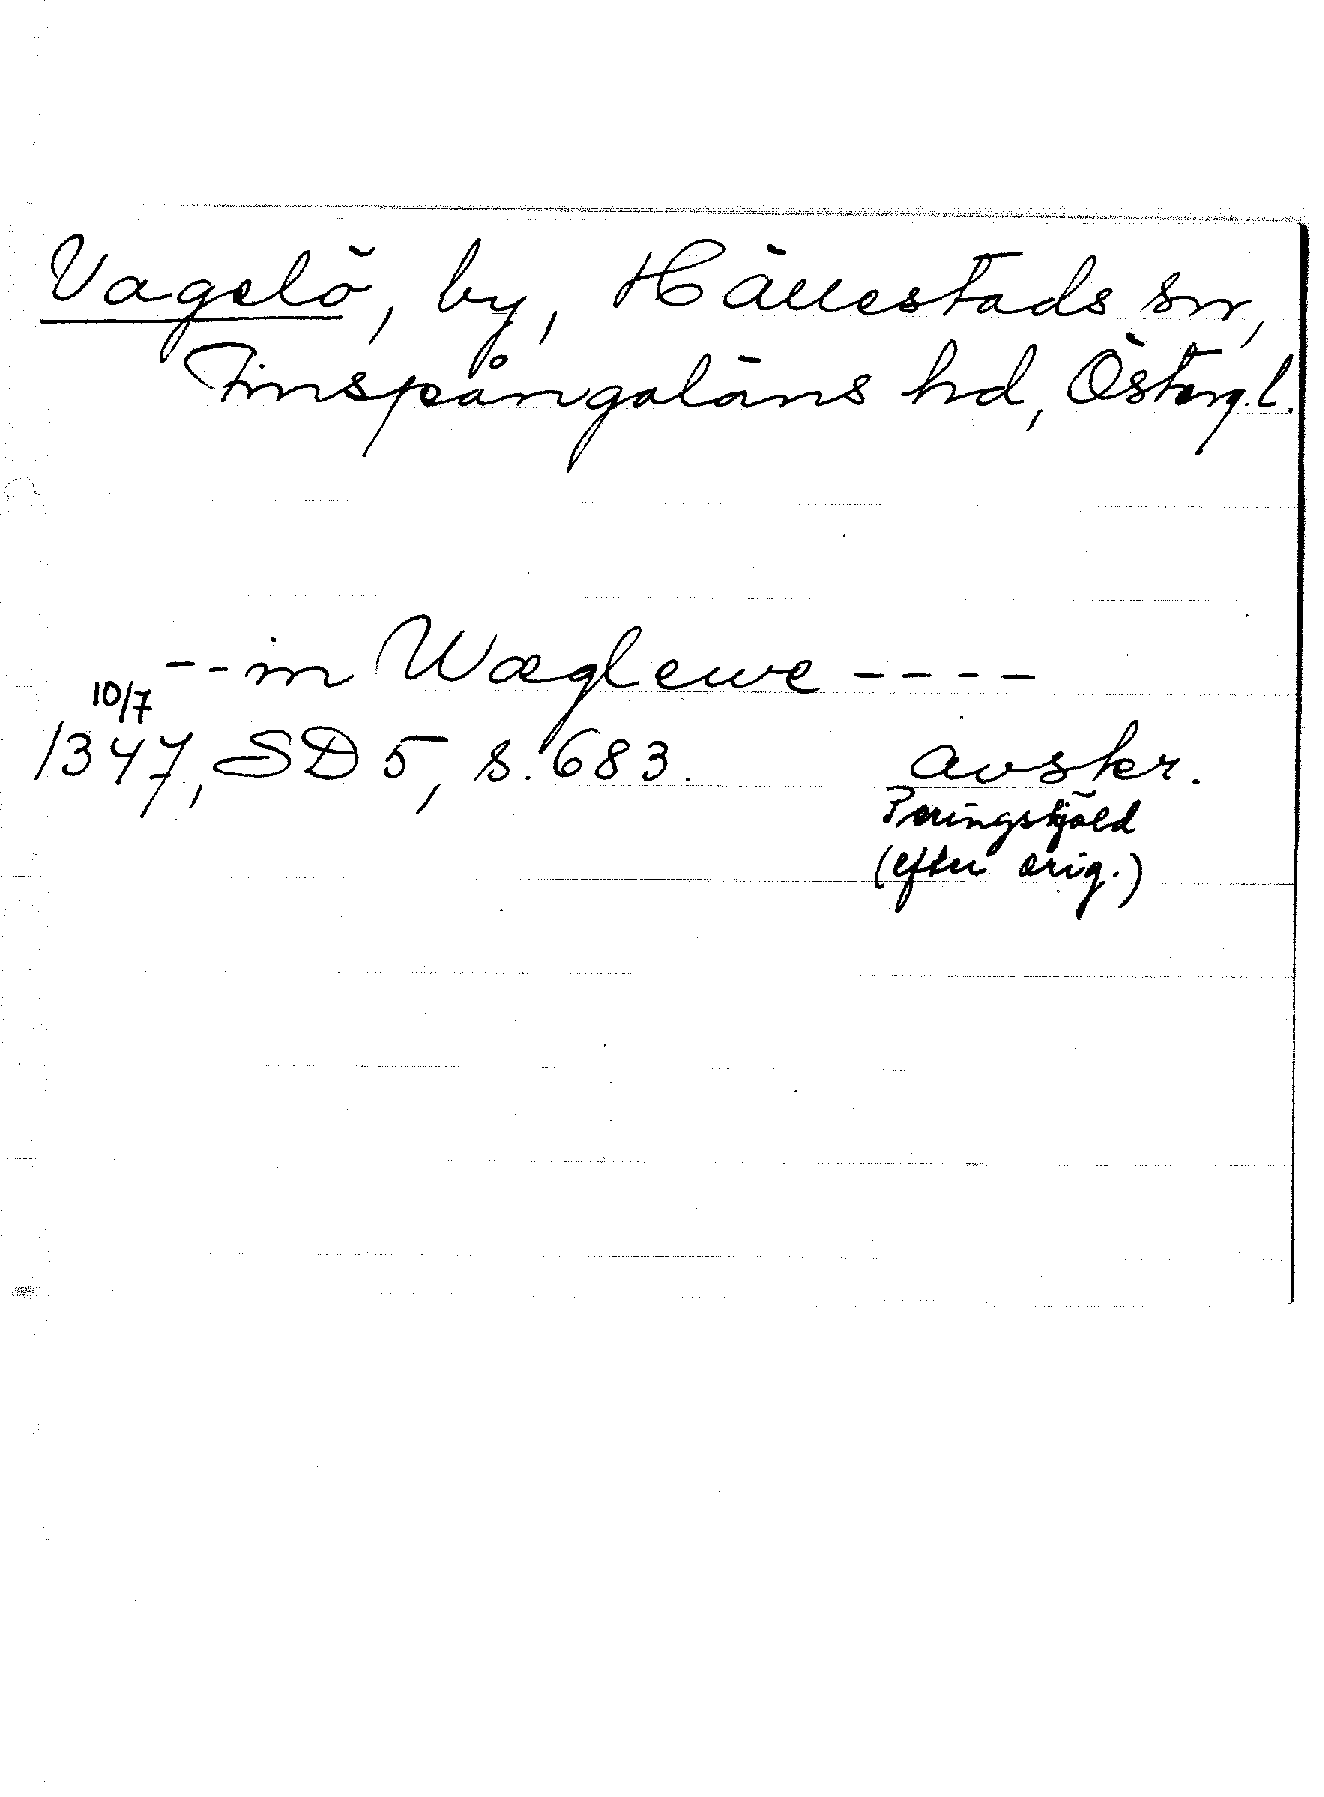 Vagelö, by, Hällestads sn,
Finspångaläns hd, Östergl.
-- in Wæglewe ----
10/7
1347, SD 5, s. 683. avskr.
Peringskjöld
(efter orig.)